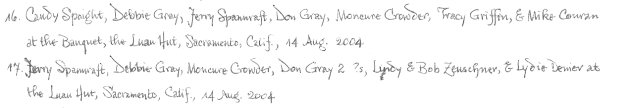 16. Candy Spaight, Debbie Gray, Jerry Spannraft, Don Gray, Moncure Crowder, Tracy Griffin, & Mike Couran
at the Banquet, the Luau Hut, Sacramento, Calif., 14 Aug. 2004
17. Jerry Spannraft, Debbie Gray, Moncure Crowder, Don Gray 2 ?s, Lyndy & Bob Zeuschner, & Lydie Denier at
the Luau Hut, Sacramento, Calif., 14 Aug. 2004